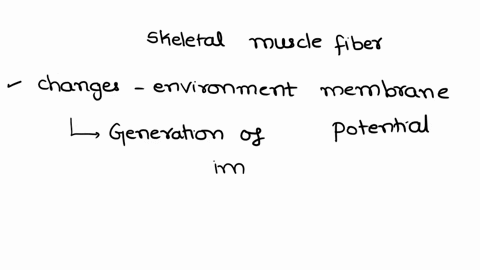 skeletal muscle fiber
✓ changes - environment membrane
↳ Generation of potential
im